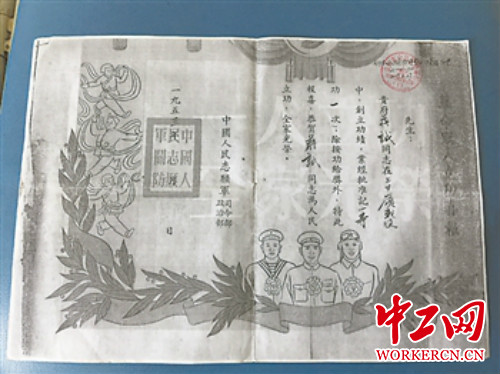 先生：
貴府蔣誠同志在上甘嶺戰役
中，創立功績，業經批准記一等
功一次；除按功給獎外，特此
報喜。恭賀蔣誠同志為人民
立功，全家光榮。
中國人民志願軍
司令部
政治部
一九五三
日
中國人
民志願
軍關防
中工网
WORKERCN.CN